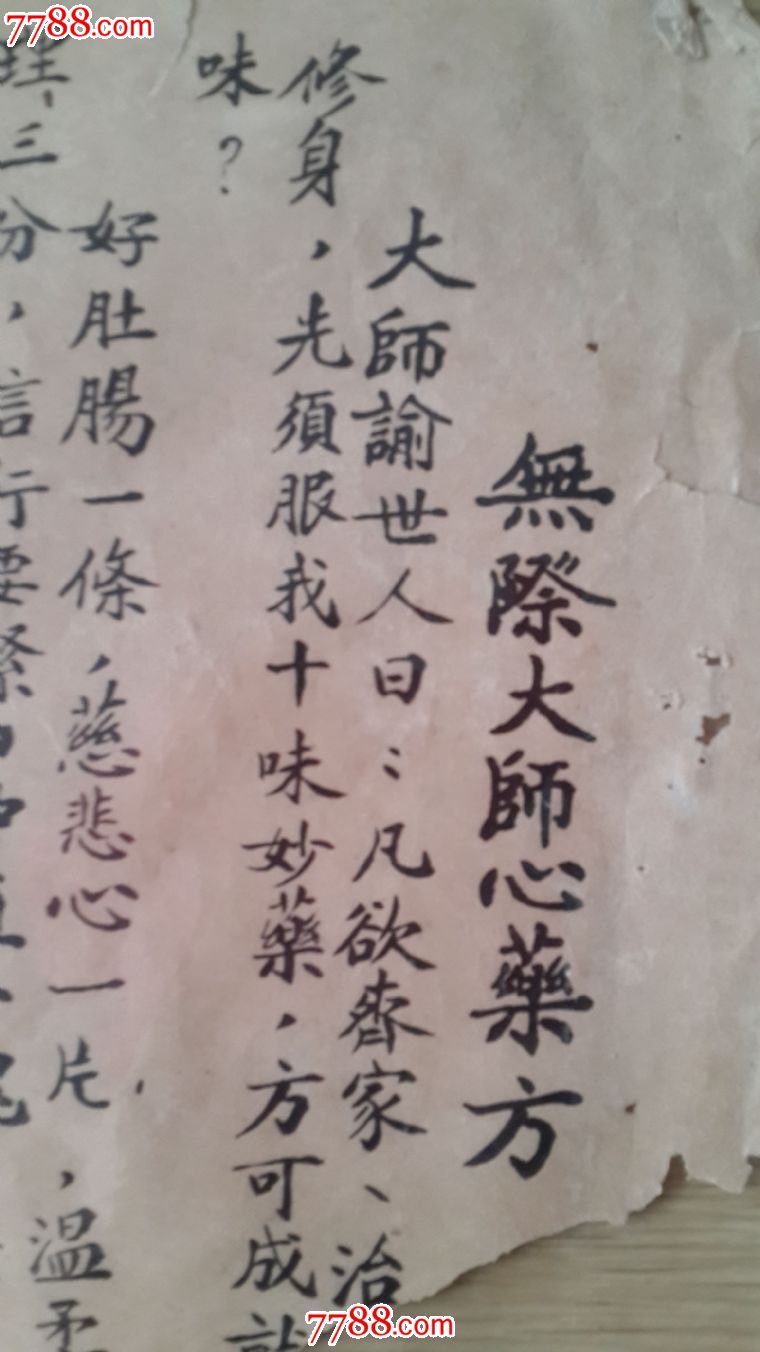 7788.com
無際大師心藥方
大師諭世人曰：凡欲齊家、治
修身，先須服我十味妙藥，方可成就
味？
好肚腸一條，慈悲心一片，溫柔
三份，信行要緊
7788.com